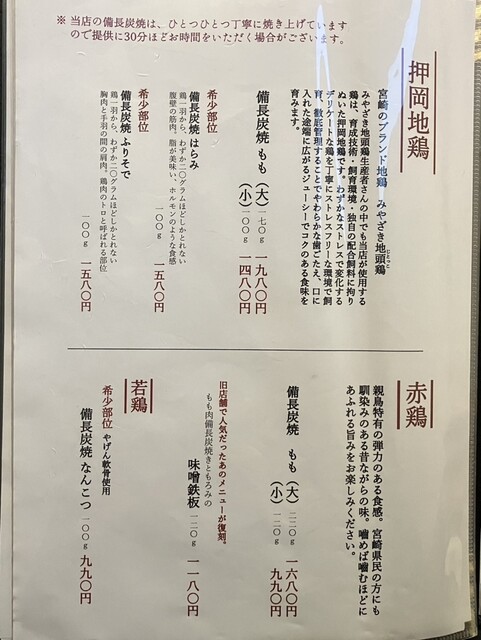 ※ 当店の備長炭焼は、ひとつひとつ丁寧に焼き上げています
ので提供に30分ほどお時間をいただく場合がございます。
押岡地鶏
宮崎のブランド地鶏 みやざき地頭鶏
じとっこ
みやざき地頭鶏生産者さんの中でも当店が使用する
鶏は、育成技術・飼育環境・独自の配合飼料に拘り
ぬいた押岡地鶏です。わずかなストレスで変化する
デリケートな鶏を丁寧にストレスフリーな環境で飼
育、徹底管理することでやわらかな歯ごたえ、口に
入れた途端に広がるジューシーでコクのある食味を
育みます。
備長炭焼 もも (大) 一七〇g 一九八〇円
(小) 一〇〇g 一四八〇円
希少部位
備長炭焼 はらみ
鶏一羽から、わずか二〇グラムほどしかとれない
腹壁の筋肉。脂が美味い、ホルモンのような食感
一〇〇g 一五八〇円
希少部位
備長炭焼 ふりそで
鶏一羽から、わずか二〇グラムほどしかとれない
胸肉と手羽の間の肩肉。鶏肉のトロと呼ばれる部位
一〇〇g 一五八〇円
赤鶏
親鳥特有の弾力のある食感。宮崎県民の方にも
馴染みのある昔ながらの味。噛めば噛むほどに
あふれる旨みをお楽しみください。
備長炭焼 もも (大) 二二〇g 一六八〇円
(小) 一二〇g 九九〇円
旧店舗で人気だったあのメニューが復刻。
もも肉備長炭焼きともろみの
味噌鉄板 一二〇g 一一八〇円
若鶏
希少部位 やげん軟骨使用
備長炭焼 なんこつ 一〇〇g 九九〇円